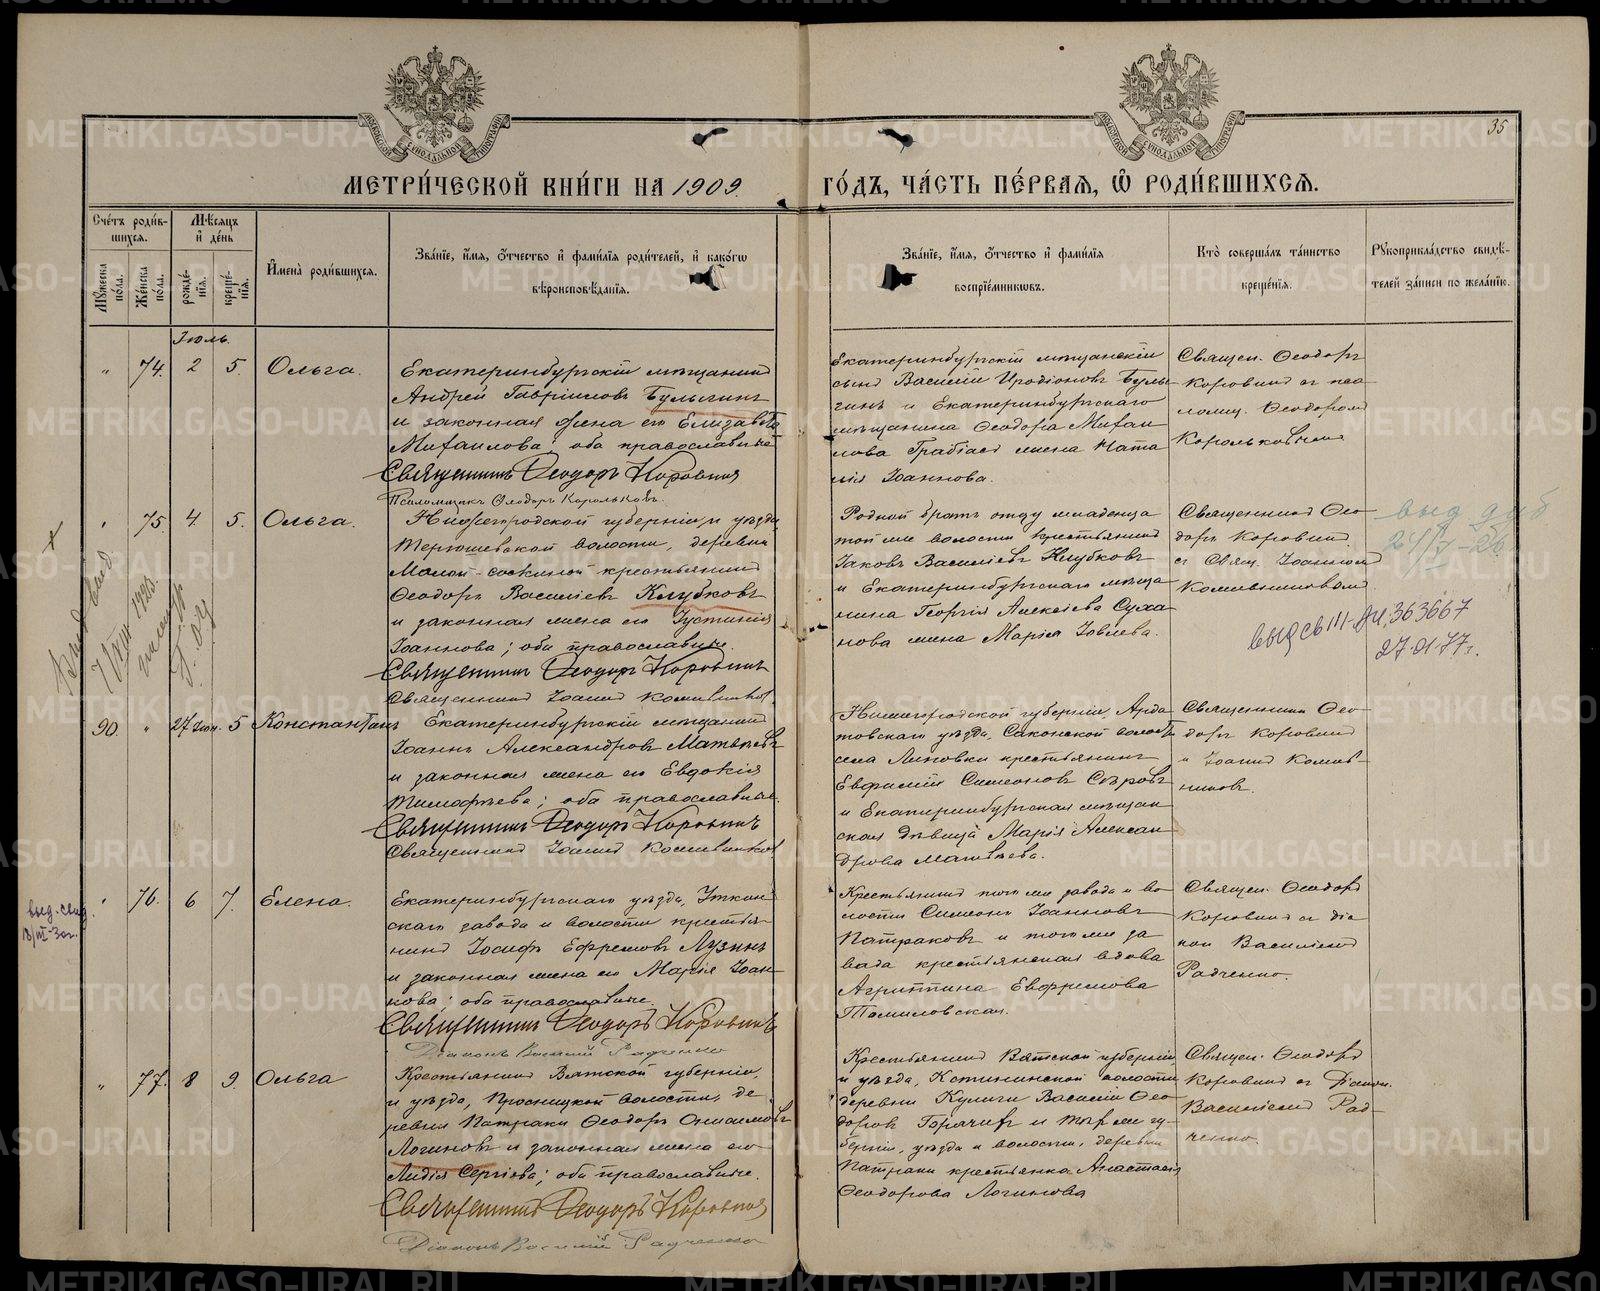 35
МЕТРИ́ЧЕСКОЙ КНИ́ГИ НА 1909 ГО́ДЪ, ЧА́СТЬ ПЕ́РВАЯ, Ѡ РОДИ́ВШИХСЯ.
Сче́тъ роди́вшихся.
Мꙋ́жеска по́ла.
Же́нска по́ла.
Мѣ́сяцъ и де́нь
рожде́нїя.
креще́нїя.
И҆мена̀ роди́вшихся.
Зва́нїе, и҆́мя, о҆́тчество и҆ фами́лїя роди́телей, и҆ како́гѡ
вѣроисповѣ́данїя.
Зва́нїе, и҆́мя, о҆́тчество и҆ фами́лїя
воспрїе́мникѡвъ.
Кто̀ соверша́лъ та́инство
креще́нїя.
Рꙋкоприкла́дство свидѣ́-
телей за́писи по жела́нїю.
Іюль.
„ 74. 2 5. Ольга.
Екатеринбургскій мѣщанинъ
Андрей Гавріиловъ Булыгинъ
и законная жена его Елизавета
Михаилова; оба православные
Священникъ Ѳеодоръ Коровинъ
Псаломщикъ Ѳеодоръ Корольковъ.
Екатеринбургскій мѣщанскій
сынъ Василій Иродіоновъ Булы-
гинъ и Екатеринбургскаго
мѣщанина Ѳеодора Михаи
лова жена Ната
лія Іоаннова.
Священ. Ѳеодоръ
Коровинъ съ пса-
ломщ. Ѳеодоромъ
Корольковымъ
„ 75. 4. 5. Ольга.
Нижегородской губерніи, и уѣзда
Терюшевской волости, деревни
Малой- крестьянинъ
Ѳеодоръ Василіевъ Клубковъ
и законная жена его Іустинія
Іоаннова; оба православные.
Священникъ Ѳеодоръ Коровинъ
Священникъ Іоаннъ
Родной братъ отцу младенца
той же волости крестьянинъ
Іаковъ Василіевъ Клубковъ
и Екатеринбургскаго мѣща
нина Георгія Алексіева Суха
нова жена Марія Іовлева.
Священникъ Ѳео
доръ Коровинъ
съ Свящ. Іоанномъ
выд дуб
выд св III-АИ. 363667
27.01.77г.
90. „ 27 Іюн. 5 Константинъ
Екатеринбургскій мѣщанинъ
Іоаннъ Александровъ Матвѣевъ
и законная жена его Евдокія
Тимофѣева; оба православные.
Священникъ Ѳеодоръ Коровинъ
Священникъ Іоаннъ
Нижегородской губерніи, Арда
товскаго уѣзда, Саконской волости
села Липовки крестьянинъ
Евфимій Симеоновъ Сѣровъ
и Екатеринбургская мѣщан
ская дѣвица Марія Алексан
дрова Матвѣева.
Священники Ѳео-
доръ Коровинъ
и Іоаннъ
выд. свид.
„ 76. 6 7. Елена.
Екатеринбургскаго уѣзда, Уткин
скаго завода и волости крестья-
нинъ Іосифъ Ефремовъ Лузинъ
и законная жена его Марія Іоан-
нова; оба православные.
Священникъ Ѳеодоръ Коровинъ
Діаконъ Василій Радченко
Крестьянинъ того же завода и во-
лости Симеонъ Іоанновъ
Патраковъ и того же за
вода крестьянская вдова
Агриппина Евфремова
Томиловская.
Священ. Ѳеодоръ
Коровинъ съ діа
кон Василіемъ
Радченко.
„ 77. 8 9. Ольга
Крестьянинъ Вятской губерніи,
и уѣзда, Просницкой волости, де-
ревни Патраки Ѳеодоръ Онисимовъ
Логиновъ и законная жена его
Лидія Сергіева; оба православные.
Священникъ Ѳеодоръ Коровинъ
Діаконъ Василій Радченко
Крестьянинъ Вятской губерніи
и уѣзда, Кстининской волости
деревни Кулиги Василій Ѳео
доровъ Горячихъ и той же гу-
берніи, уѣзда и волости, деревни
Патраки крестьянка Анастасія
Ѳеодорова Логинова
Священ. Ѳеодоръ
Коровинъ съ Діакон.
Василіемъ Рад-
ченко.